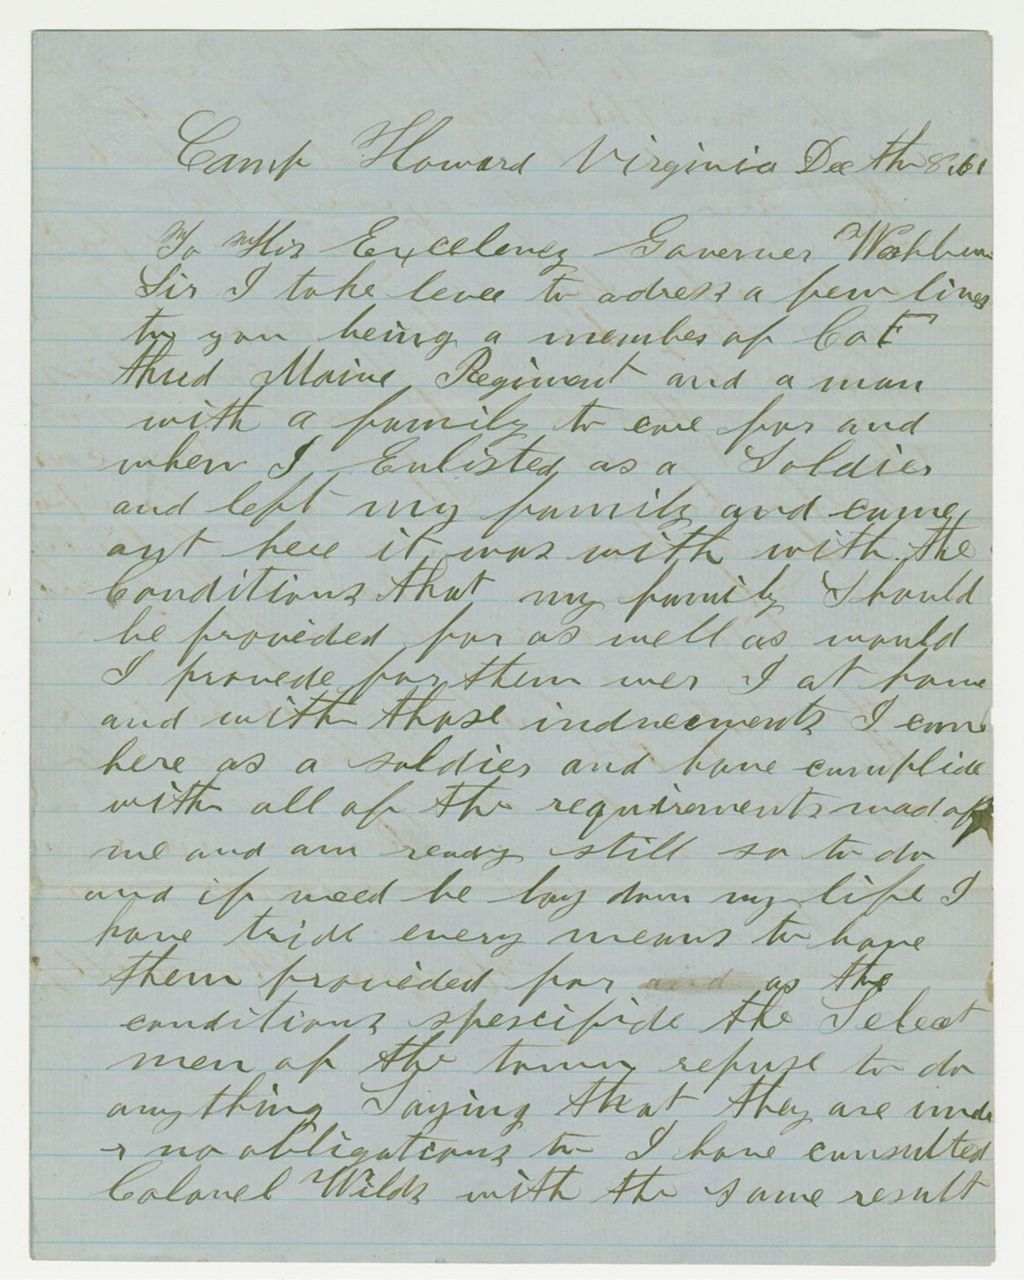 Camp Howard Virginia Dec th 8 61
To His Excelency Governer Washburn
Sir I take leve to adress a few lines
to you being a member of Co F
third Maine Regiment and a man
with a family to care for and
when I Enlisted as a Soldier
and left my family and came
out here it was with with the
Conditions that my family Should
be provided for as well as would
I provede for them wer I at home
and with those inducements I came
here as a soldier and have complide
with all of the requirements mad of
me and am ready still so to do
and if need be lay down my life I
have tride every means to have
them provided for and as the
conditions spescifide the Select
men of the town refuse to do
any thing Saying that they are unde
r no obligations to I have consulted
Colonel Wilds with the same result